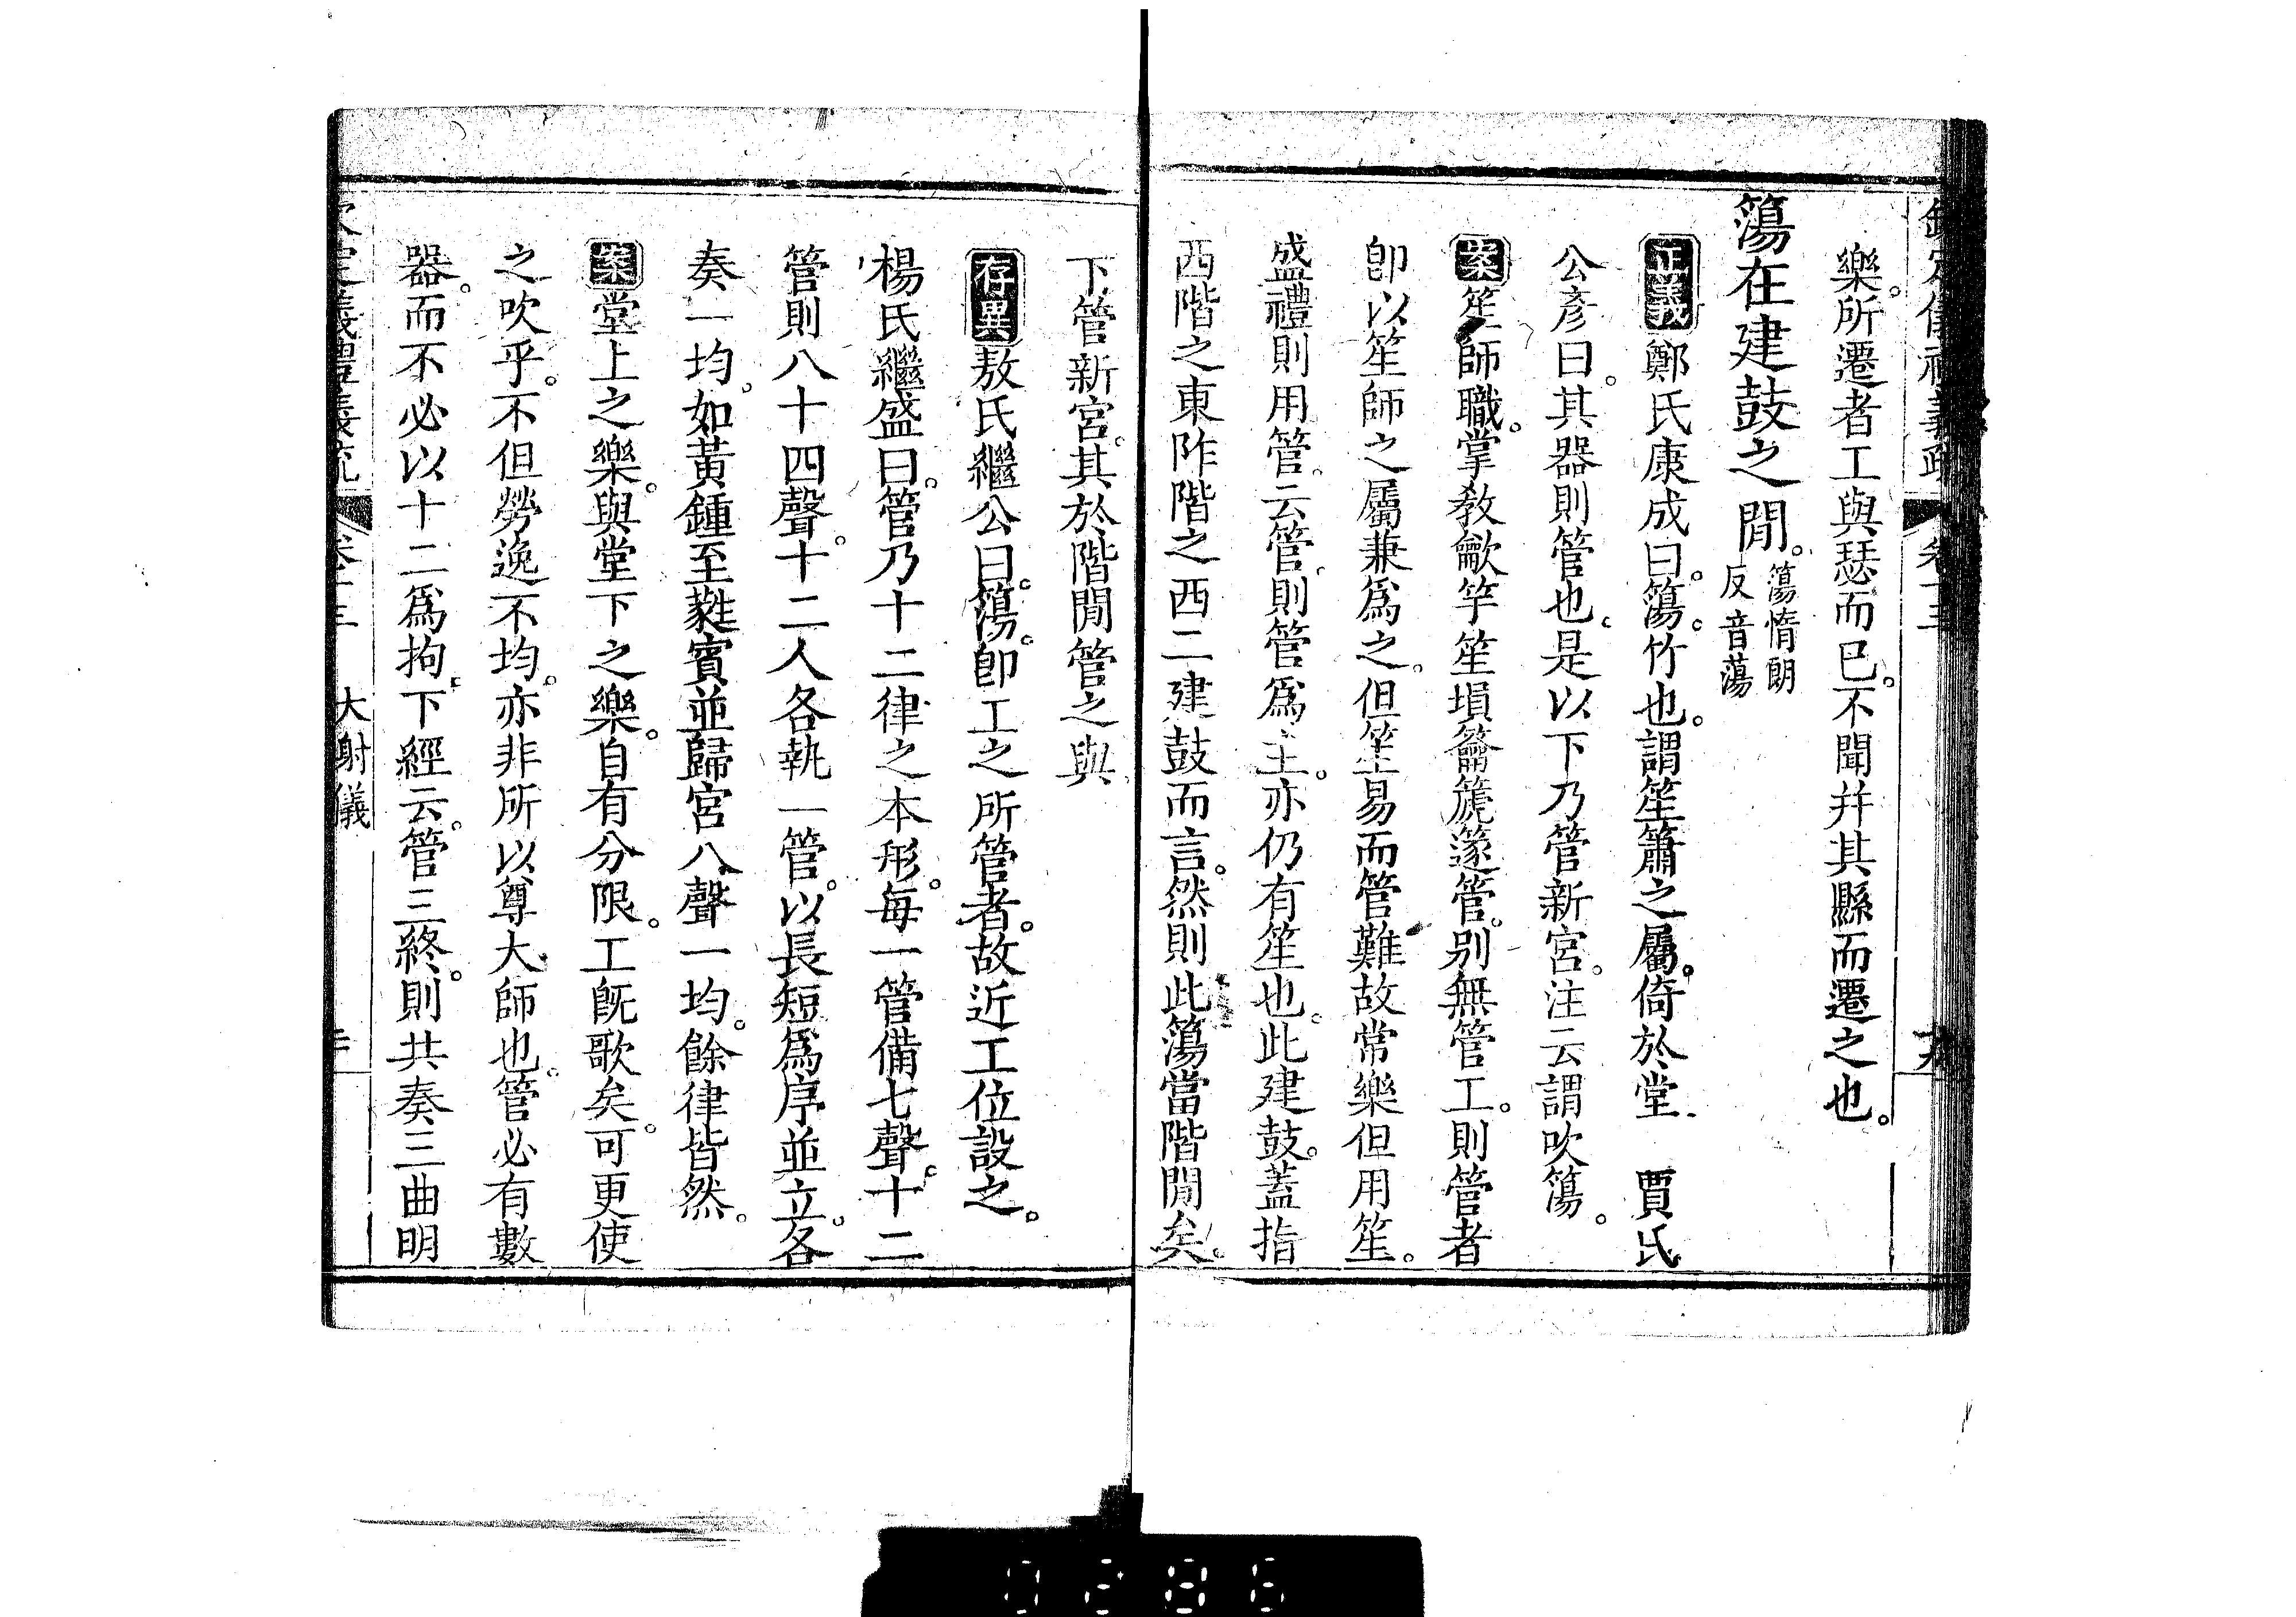 樂。所遷者工與瑟而已。不聞并其縣而遷之也。
簜在建鼓之閒。簜惰朗
反音蕩
正義鄭氏康成曰。簜。竹也。謂笙簫之屬。倚於堂 賈氏
公彥曰。其器則管也。是以下乃管新宮。注云謂吹簜。
案笙師職。掌敎龡竽笙塤籥篪篴管。別無管工。則管者
卽以笙師之屬兼爲之。但笙易而管難故常樂但用笙。
盛禮則用管。云管。則管爲主。亦仍有笙也。此建鼓。蓋指
西階之東阼階之西二建鼓而言。然則此簜當階閒矣。
下管新宮。其於階閒管之與
存異敖氏繼公曰。簜。卽工之所管者。故近工位設之。
楊氏繼盛曰。管乃十二律之本形。每一管備七聲。十二
管則八十四聲。十二人各執一管。以長短爲序並立。各
奏一均。如黃鍾至蕤賓並歸宮八聲一均。餘律皆然。
案堂上之樂。與堂下之樂。自有分限。工旣歌矣。可更使
之吹乎。不但勞逸不均。亦非所以尊大師也。管必有數
器。而不必以十二爲拘。下經云。管三終。則共奏三曲明
大射儀